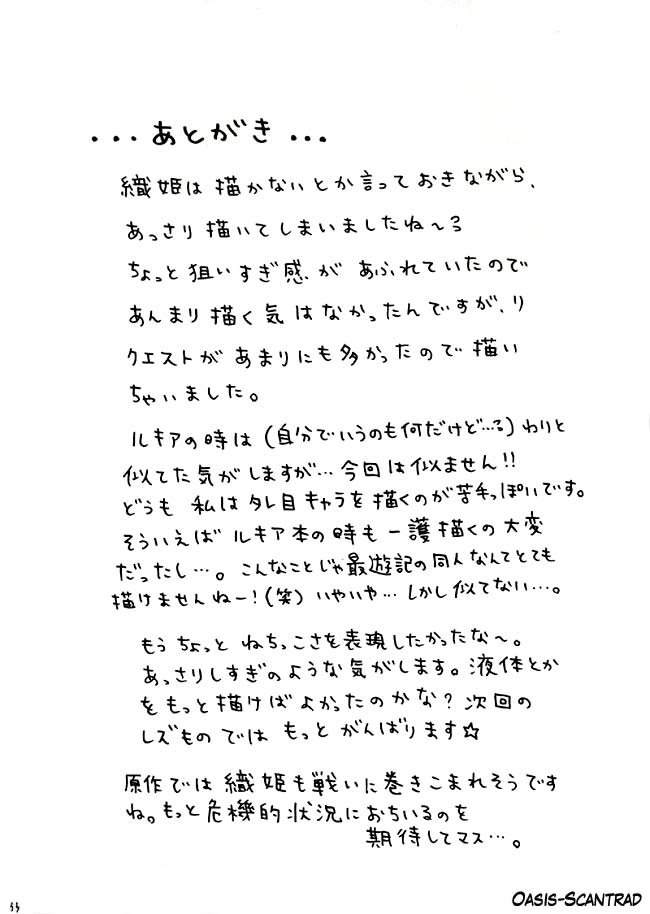 ...あとがき...
織姫は描かないとか言っておきながら、
あっさり描いてしまいましたね〜る
ちょっと狙いすぎ感があふれていたので
あんまり描く気はなかったんですが、リ
クエストがあまりにも多かったので描い
ちゃいました。
ルキアの時は(自分でいうのも何だけど…る)わりと
似てた気がしますが…今回は似ません!!
どうも私はタレ目キャラを描くのが苦手っぽいです。
そういえばルキア本の時も一護描くの大変
だったし…。こんなことじゃ最遊記の同人なんてとても
描けませんねー!(笑)いやいや…しかし似てない…。
もうちょっとねちっこさを表現したかったな〜。
あっさりしすぎのような気がします。液体とか
をもっと描けばよかったのかな?次回の
レズものではもっとがんばります☆
原作では織姫も戦いに巻きこまれそうです
ね。もっと危機的状況におちいるのを
期待してマス…。
33
Oasis-Scantrad